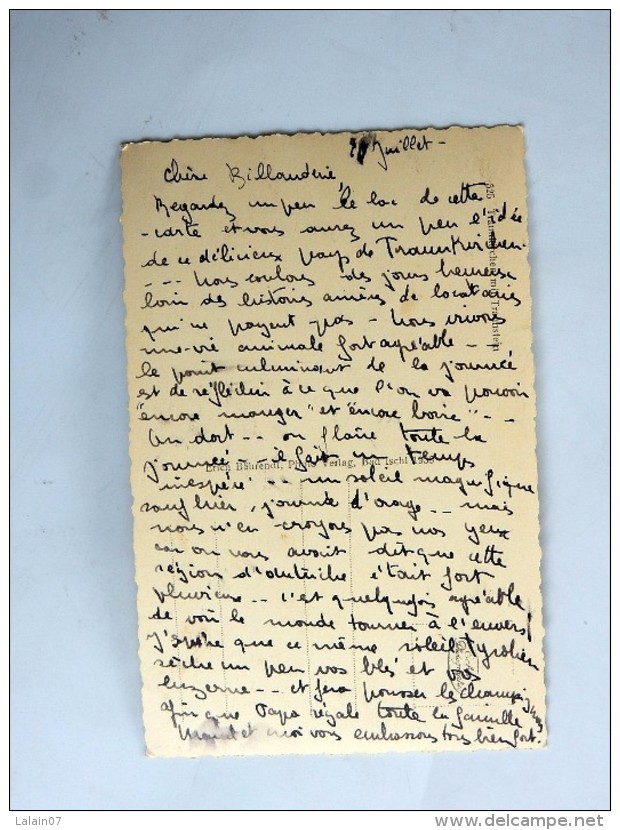 Juillet -
Chère Billauderie,
Regardez un peu le lac de cette
- carte et vous aurez un peu l'idée
de ce délicieux pays de Traunkirchen -
--- Nous coulons des jours heureux
loin des histoires amères de locataires
qui ne payent pas - Nous vivons
une vie animale fort agréable -
le point culminant de la journée
est de réfléchir à ce que l'on va pouvoir
"encore manger" et "encore boire" - -
On dort -- on flâne toute la
journée -- il fait un temps
inespéré -- un soleil magnifique
sauf hier, journée d'orage -- mais
nous n'en croyons pas nos yeux
car on nous avait dit que cette
région d'Autriche était fort
pluvieuse -- c'est quelquefois agréable
de voir le monde tourner à l'envers!
J'espère que ce même soleil tyrolien
sèche un peu vos blés et vos
luzernes -- et fera pousser les champignons
afin que Papa régale toute la famille
et moi vous embrassons tous bien fort.
526 Traunkirchen mit Traunstein
Erich Bährendt, Photo Verlag, Bad Ischl 1950
Lalain07
www.delcampe.net